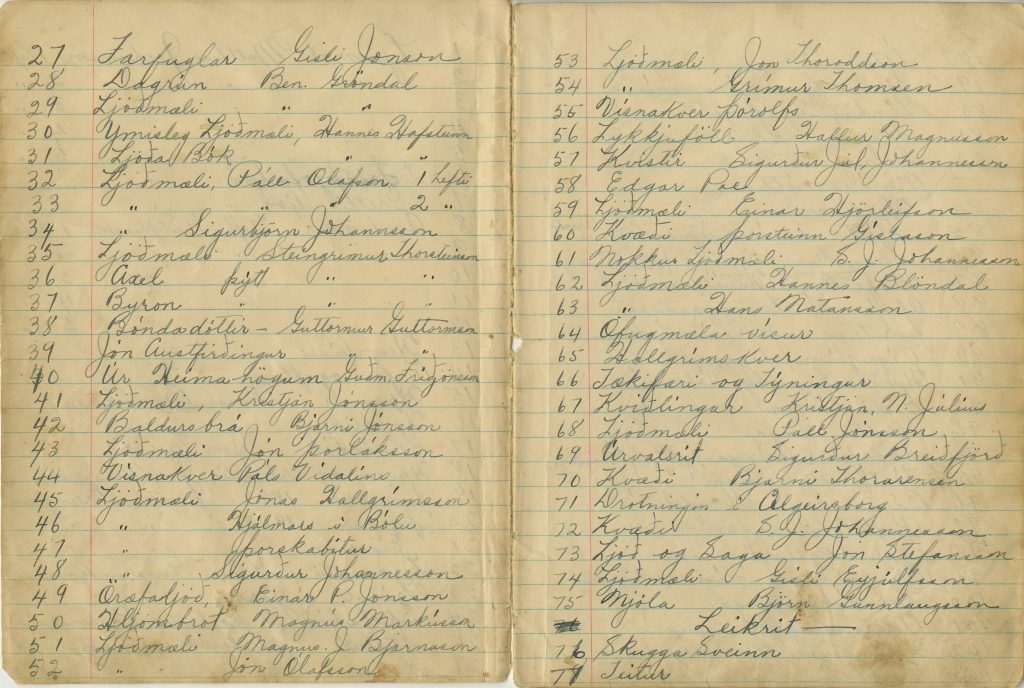 27 Farfuglar Gisli Jonson
28 Dagrún Ben. Gröndal
29 Ljóðmæli " "
30 Ymisleg Ljóðmæli, Hannes Hafsteinn
31 Ljóða Bók " "
32 Ljóðmæli, Páll Olafson 1 hefti
33 " " " 2 "
34 " Sigurbjörn Jóhannsson
35 Ljóðmæli Steingrimur Thorsteinson
36 Axel þýtt " "
37 Byron " " "
38 Bóndadóttir - Guttormur Guttormson
39 Jón Austfirðingur " "
40 Úr Heimahögum Guðm. Friðjónsson
41 Ljóðmæli, Kristján Jónsson
42 Baldursbrá Bjárni Jónsson
43 Ljóðmæli Jón þorláksson
44 Vísnakver Páls Vidalíns
45 Ljóðmæli Jónas Hallgrímsson
46 " Hjálmars í Bólu
47 " þorskabítur
48 " Sigurður Jóhannesson
49 Öræfaljóð, Einar P. Jónsson
50 Hljómbrot Magnús Markússon
51 Ljóðmæli Magnus. J. Bjarnason
52 " Jón Olafsson
53 Ljóðmæli, Jón Thoroddson
54 " Grímur Thomsen
55 Vísnakver þórolfs
56 Lykkjuföll Hallur Magnusson
57 Kvistir Sigurður Júl. Jóhannessen
58 Edgar Poe
59 Ljóðmæli Einar Hjörleifson
60 Kvæði þorsteinn Gíslason
61 Nokkur Ljóðmæli S. J. Johannesson
62 Ljóðmæli Hannes Blöndal
63 " Hans Natansson
64 Öfugmæla vísur
65 Hallgríms kver
66 Tækifæri og Týningur
67 Kviðlingar Kristján, N. Júlíus
68 Ljóðmæli Páll Jónsson
69 Úrvalsrit Sigurður Breiðfjörð
70 Kvæði Bjarni Thorarensen
71 Drotningin í Algeirsborg
72 Kvæði S. J. Jóhannesson
73 Ljóð og Saga Jón Stefansson
74 Ljóðmæli Gisli Eyjúlfsson
75 Mjöla Björn Gunnlaugsson
Leikrit —
76 Skugga Sveinn
77 Teitur